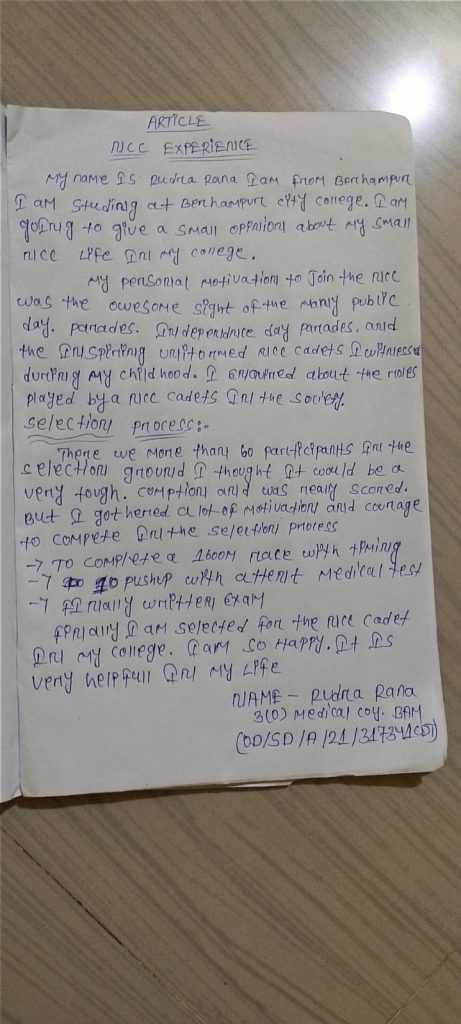 ARTICLE
NCC EXPERIENCE
My name Is Rudra Rana I am from Berhampur
I am Studing at Berhampur city college. I am
going to give a small oppinion about my small
ncc Life In my college.
My personal motivation to Join the ncc
was the owesome sight of the many public
day. parades. Independnce day parades. and
the Inspiring uniformed ncc cadets I witnessed
during my childhood. I enquired about the roles
played by a ncc cadets In the society.
Selection process:-
There we more than 60 participants In the
selection ground I thought It would be a
very tough. comption and was really scored.
But I gothered a lot of motivation and courage
to compete In the selection process
→ TO complete a 1600M race with timing
→ 10 pushup with attent Medical test
→ FInally written Exam
finally I am selected for the ncc cadet
In my college. I am so Happy. It Is
very helpfull In my Life
NAME - Rudra Rana
3(O) Medical coy. BAM
(OD/SD/A/21/317341CDT)